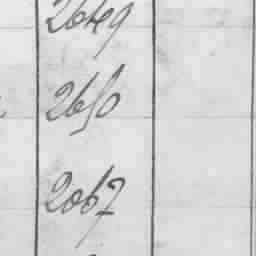 2649
2650
2067